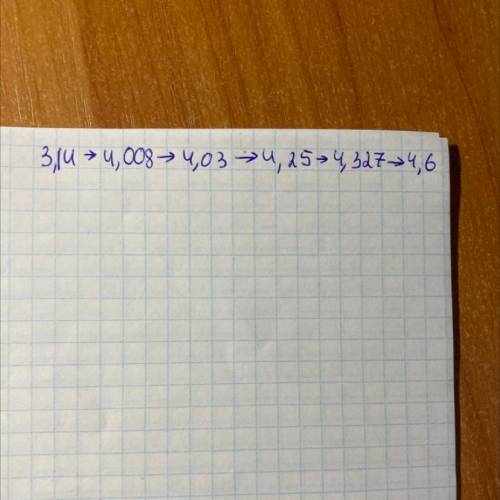 3,14 → 4,008 → 4,03 → 4,25 → 4,327 → 4,6